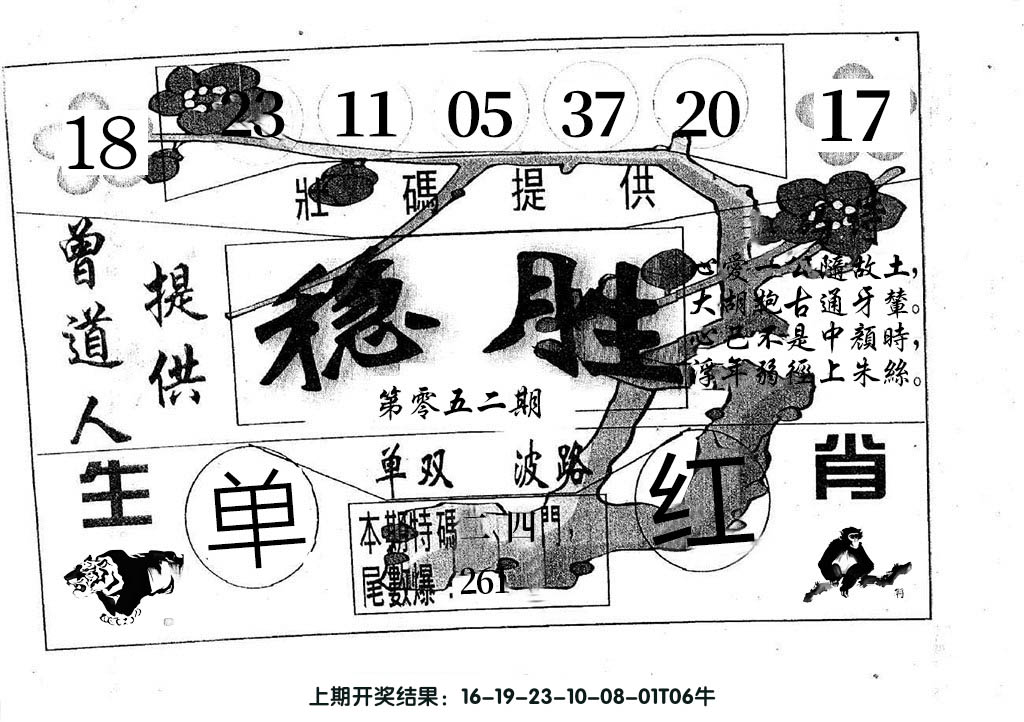 18 23 11 05 37 20 17
壯碼提供
曾道人
提供
特
心愛一公隨故土，
大湖鮑古通牙輦。
心已不是中顏時，
浮年弱徑上朱絲。
稳胜
第零五二期
单双 波路
生肖
单
红
本期特碼二、四門，
尾數爆：261
上期开奖结果：16-19-23-10-08-01T06牛